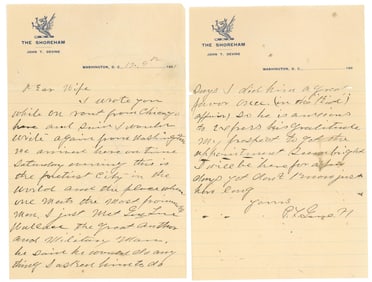 THE SHOREHAM
JOHN T. DEVINE
WASHINGTON, D.C. 190
Dear Wife
I wrote you
while en rout from Chicago
here and said I would
write again from Washington
we arrived here on time
Saturday evening this is
the pretiest City in the
world and the place where
one meets the most prominent
men, I just Met Gen Lew
Wallace the great Author
and Military Man,
he said he would do any
thing I asked him to do
THE SHOREHAM
JOHN T. DEVINE
WASHINGTON, D.C. 190
Says I did him a great
favor once (in the Kid
affair) so he is anxious
to express his gratitude
My prospect to get the
appointment seems bright
I will be here for a few
days yet don't know just
how long
Yours
P F Garrett